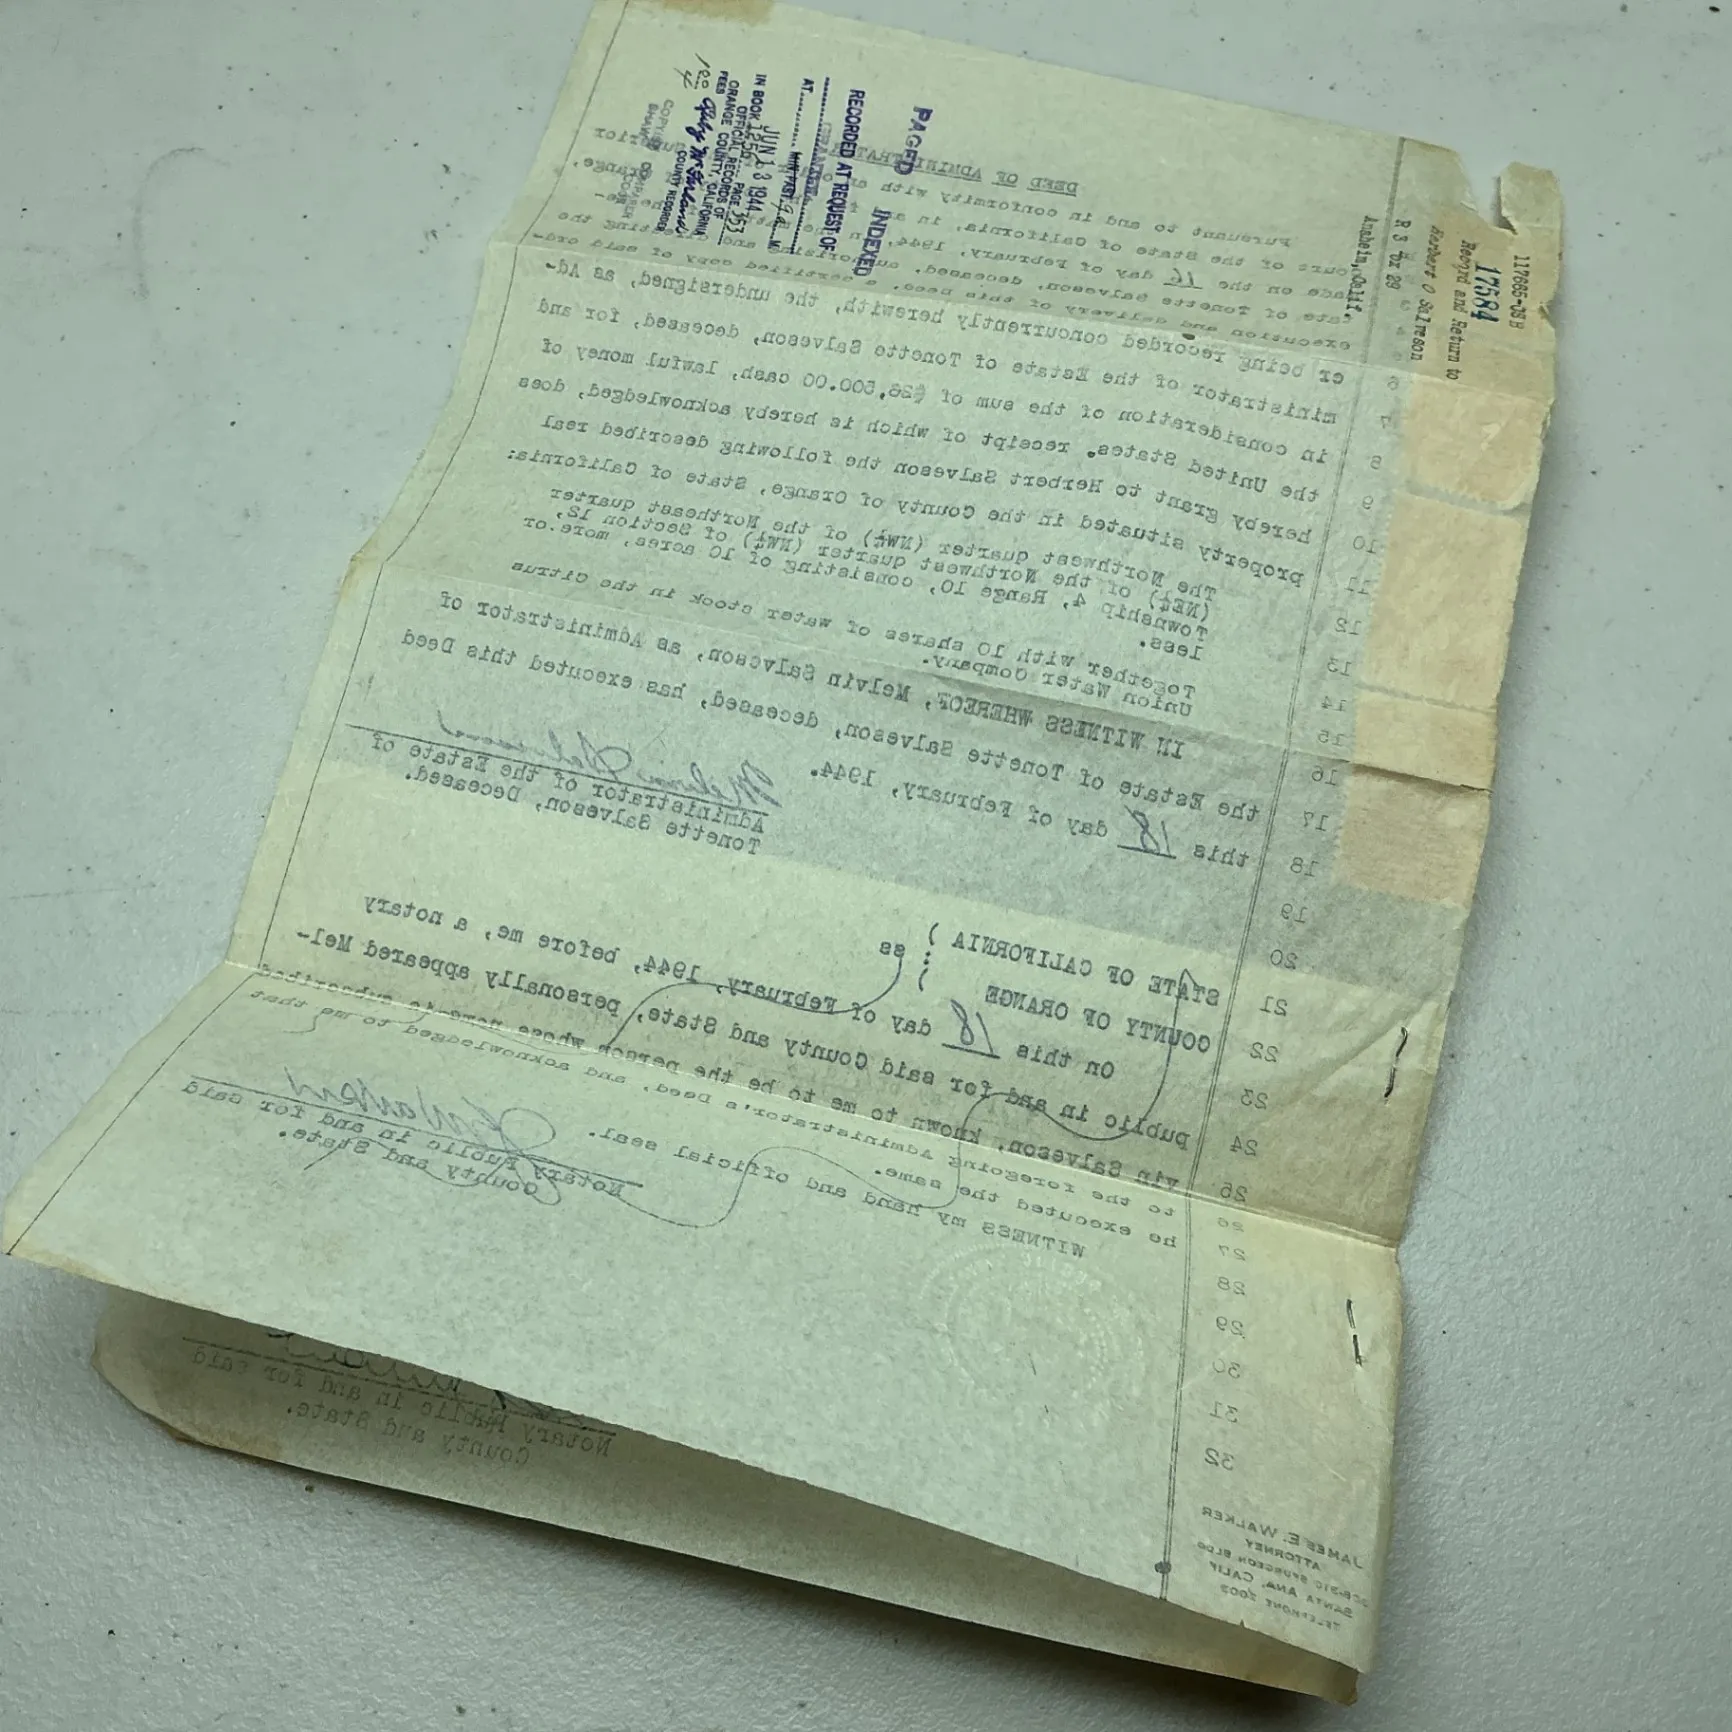 117685-JSH
17584
Record and Return to
Herbert O Salveson
R 3 Box 29
Anaheim, Calif.
PAGED INDEXED
RECORDED AT REQUEST OF
GRANTEE
AT MIN PAST 9 A M
JUN 13 1944
IN BOOK 1256 PAGE 353
OFFICIAL RECORDS OF
ORANGE COUNTY, CALIFORNIA
FEES
COUNTY RECORDER
1 00
4
COMPARED
DEED OF ADMINISTRATOR
Pursuant to and in conformity with an
Court of the State of California, in and
made on the 16 day of February, 1944, in the
tate of Tonette Salveson, deceased, authorizing and directing the
execution and delivery of this Deed, a certified copy of said ord-
er being recorded concurrently herewith, the undersigned, as Ad-
ministrator of the Estate of Tonette Salveson, deceased, for and
in consideration of the sum of $26,500.00 cash, lawful money of
the United States, receipt of which is hereby acknowledged, does
hereby grant to Herbert Salveson the following described real
property situated in the County of Orange, State of California:
The Northwest quarter (NW¼) of the Northeast quarter
(NE¼) of the Northwest quarter (NW¼) of Section 12,
Township 4, Range 10, consisting of 10 acres, more or
less.
Together with 10 shares of water stock in the Citrus
Union Water Company.
IN WITNESS WHEREOF, Melvin Salveson, as Administrator of
the Estate of Tonette Salveson, deceased, has executed this Deed
this 18 day of February, 1944.
Melvin Salveson
Administrator of the Estate of
Tonette Salveson, Deceased.
STATE OF CALIFORNIA )
: ss
COUNTY OF ORANGE )
On this 18 day of February, 1944, before me, a notary
public in and for said County and State, personally appeared Mel-
vin Salveson, known to me to be the person whose name is subscribed
to the foregoing Administrator's Deed, and acknowledged to me that
he executed the same.
WITNESS my hand and official seal.
Notary Public in and for said
County and State.
6
7
8
9
10
11
12
13
14
15
16
17
18
19
20
21
22
23
24
25
26
27
28
29
30
31
32
JAMES E. WALKER
ATTORNEY
SPURGEON BLDG
SANTA ANA, CALIF
TELEPHONE 2002
Notary Public in and for said
County and State.